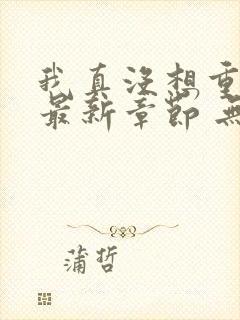 我真没想重
最新章节 無
蒲哲